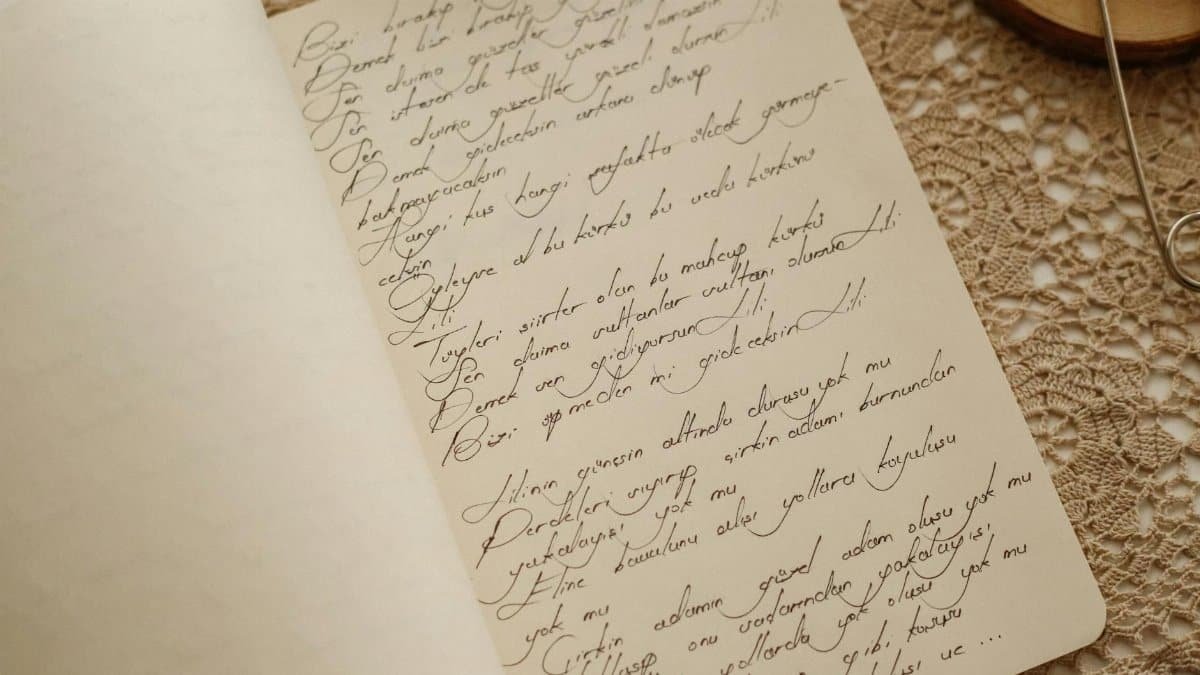 Bizi bırakıp
Demek bizi bırakıp
Sen daima güzeller güzelisin
Sen istesen de taş yürekli olamazsın Lili
Sen daima güzeller güzeli olursun
Demek gideceksin arkana dönüp
bakmayacaksın
Hangi kuş hangi şafakta ölecek görmeye-
ceksin
Öyleyse al bu kürkü bu veda kürkünü
Lili
Tüyleri şiirler olan bu mahcup kürkü
Sen daima sultanlar sultanı olursun Lili
Demek sen gidiyorsun Lili
Bizi öpmeden mi gideceksin Lili
Lilinin güneşin altında duruşu yok mu
Perdeleri sıyırıp çirkin adamı burnundan
yakalayışı yok mu
Eline bavulunu alışı yollara koyuluşu
yok mu
Çirkin adamın güzel adam oluşu yok mu
onu yakalayışı
yollarda yok oluşu yok mu
gibi
ve ...